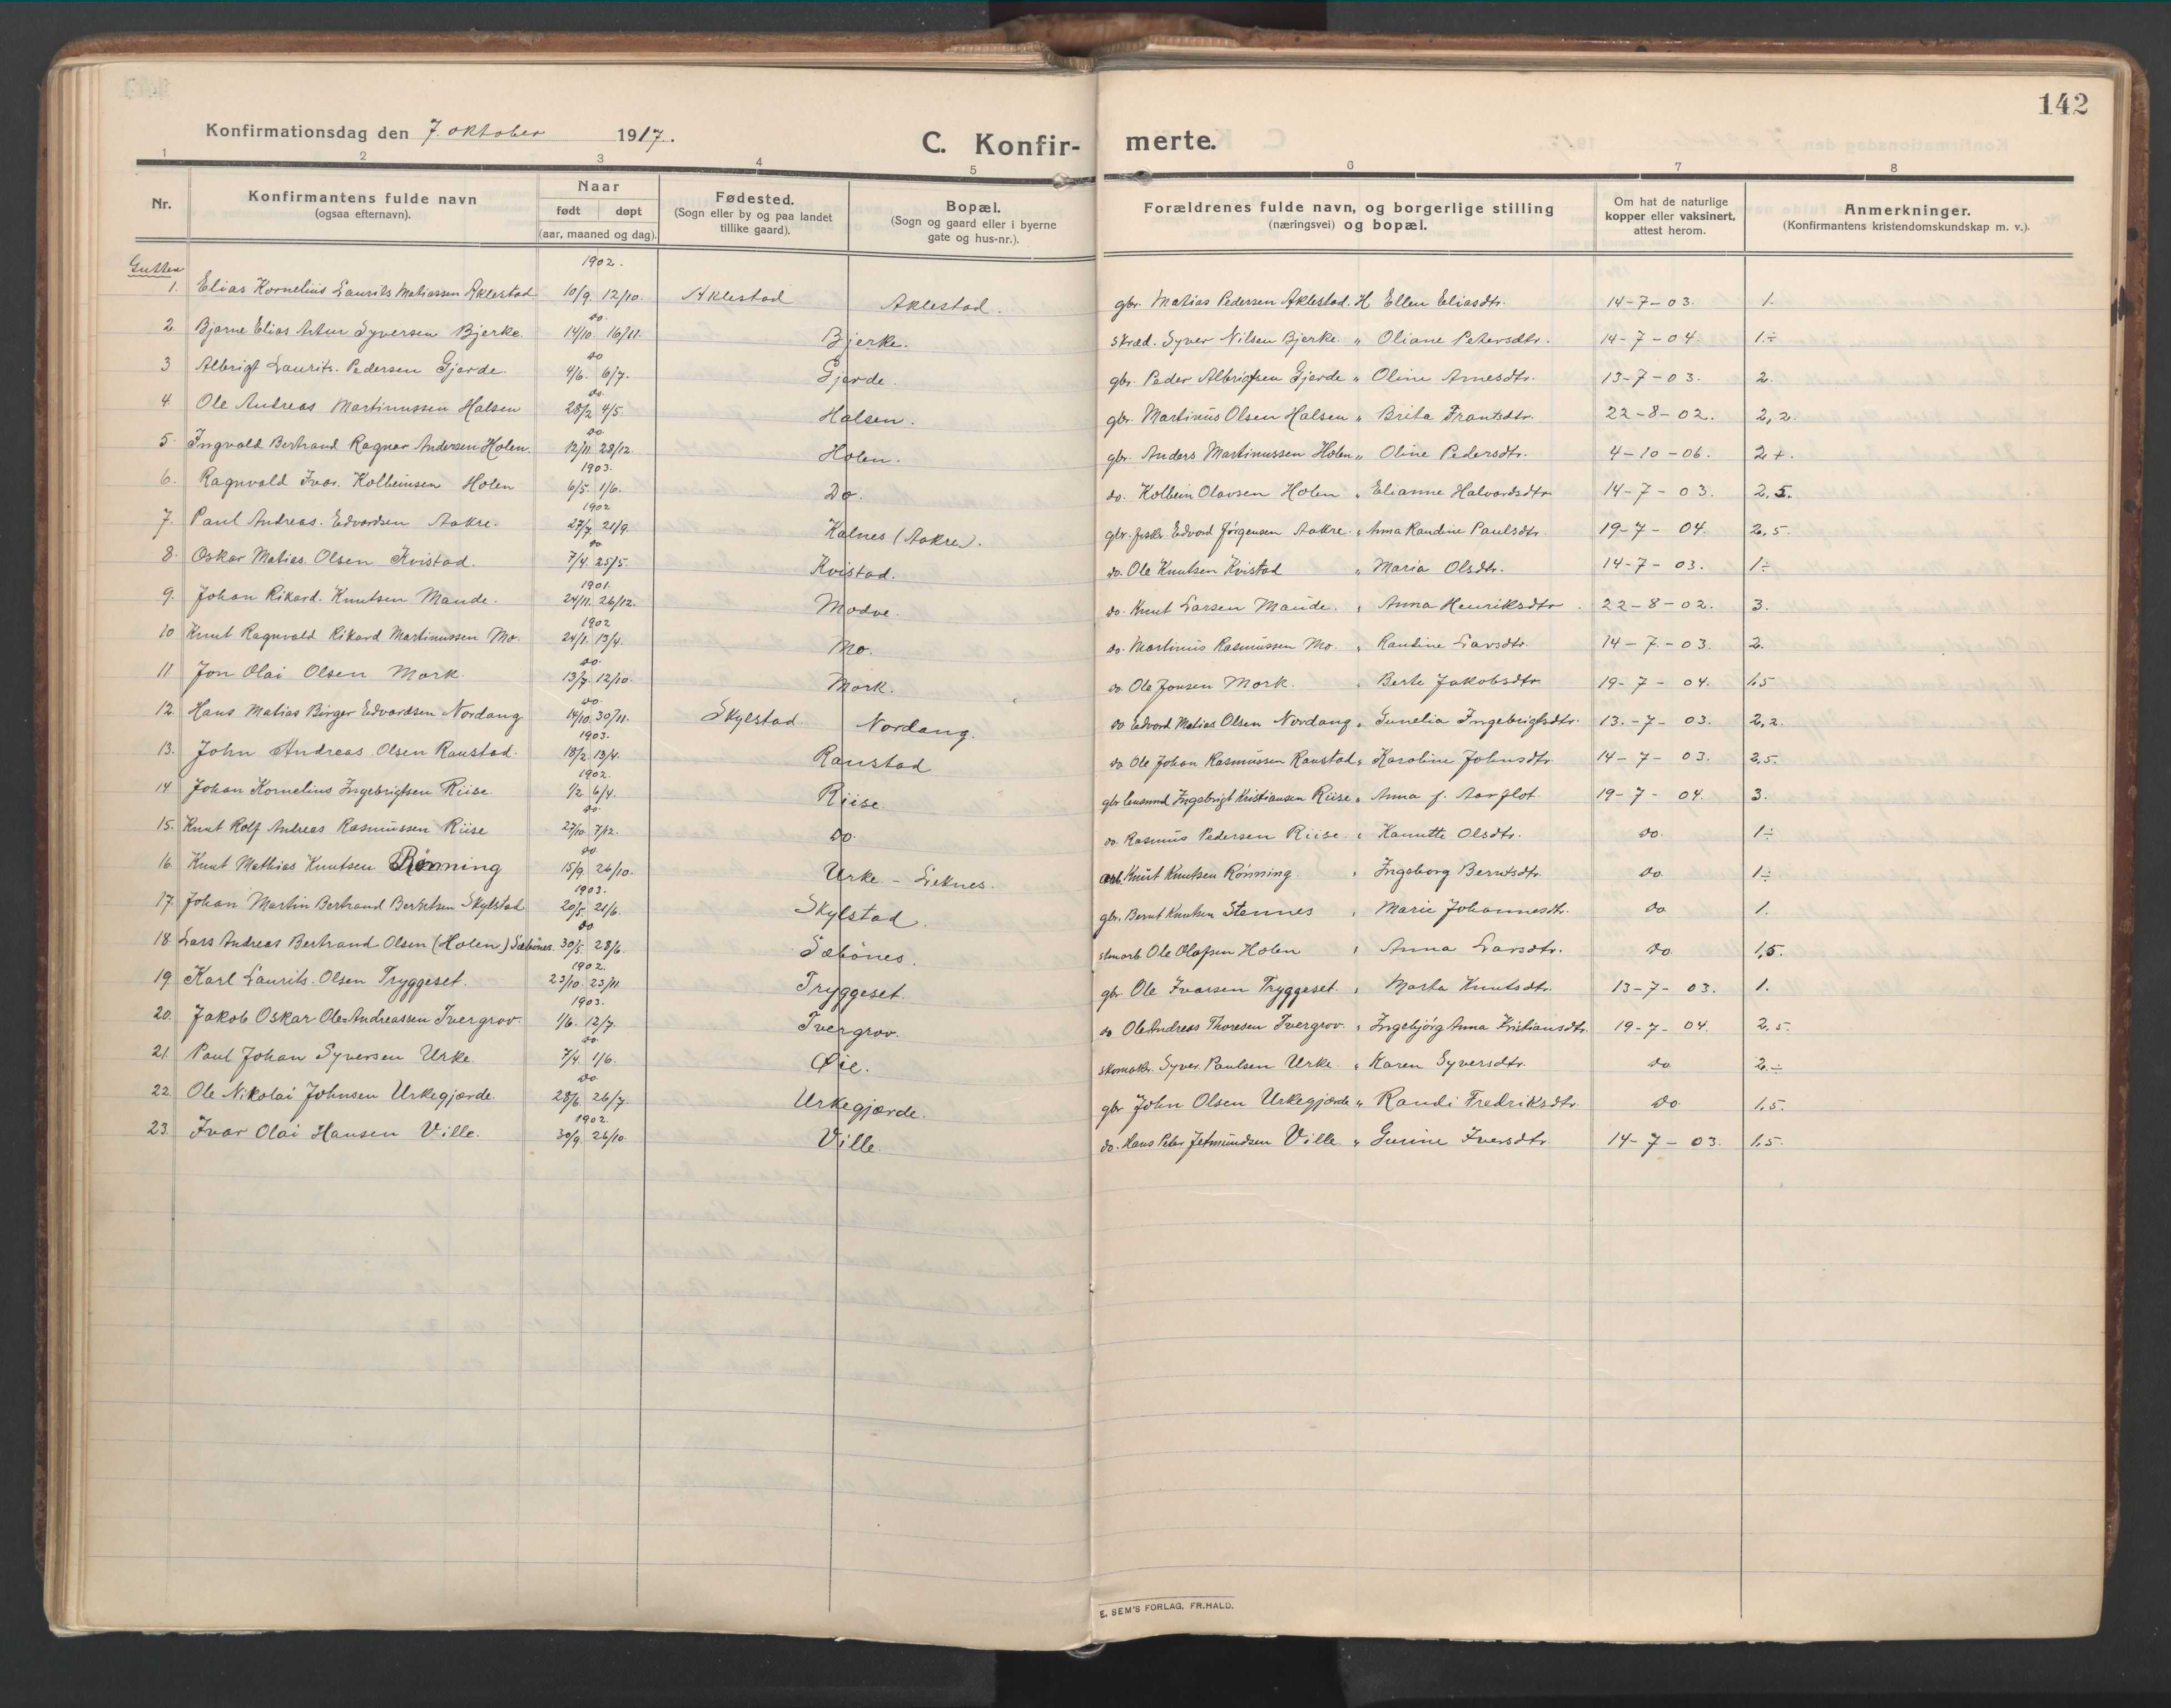 142
Konfirmationsdag den 7. oktober 1917.
C. Konfirmerte.
1 2 3 4 5 6 7 8
Nr.
Konfirmantens fulde navn
(ogsaa efternavn).
Naar
født døpt
(aar, maaned og dag).
Fødested.
(Sogn eller by og paa landet
tillike gaard).
Bopæl.
(Sogn og gaard eller i byerne
gate og hus-nr.).
Forældrenes fulde navn, og borgerlige stilling
(næringsvei) og bopæl.
Om hat de naturlige
kopper eller vaksinert,
attest herom.
Anmerkninger.
(Konfirmantens kristendomskundskap m. v.).
Gutter
1902.
1. Elias Kornelius Laurits Matiassen Aklestad 10/9. 12/10. Aklestad Aklestad. gbr. Matias Pedersen Aklestad. H Ellen Eliasdtr. 14-7-03. 1.
do.
2. Bjarne Elias Artur Syversen Bjerke. 14/10. 16/11. Bjerke. skræd. Syver Nilsen Bjerke. " Oliane Petersdtr. 14-7-04. 1÷
do
3 Albrigt Laurits. Pedersen Gjerde. 4/6. 6/7. Gjerde. gbr. Peder Albrigtsen Gjerde " Oline Arnesdtr. 13-7-03. 2.
do.
4. Ole Andreas Martinussen Halsen 28/2 4/5 Halsen. gbr. Martinus Olsen Halsen " Brita Frantsdtr. 22-8-02. 2,2.
do.
5. Ingvald Bertrand Ragnar Andersen Holen. 12/11. 28/12. Holen. gbr. Anders Martinussen Holen " Oline Pedersdtr. 4-10-06. 2+.
1903.
6. Ragnvald Ivar. Kolbeinsen Holen 6/5. 1/6. Do. do. Kolbein Olavsen Holen " Elianne Halvardsdtr 14-7-03. 2,5.
1902
7. Paul Andreas. Edvardsen Aakre. 27/7. 21/9. Kalnes (Aakre). gbr. fisker Edvard Jørgensen Aakre. " Anna Randine Paulsdtr. 19-7-04. 2,5.
do
8. Oskar Matias. Olsen Kvistad. 7/4. 25/5. Kvistad. do. Ole Knutsen Kvistad " Maria Olsdtr. 14-7-03. 1÷
1901.
9. Johan Rikard. Knutsen Maude. 24/11. 26/12. Modve. do. Knut Larsen Maude. " Anna Henriksdtr. 22-8-02. 3.
1902
10 Knut Ragnvald Rikard Martinussen Mo. 24/1. 13/4. Mo. do. Martinus Rasmussen Mo. " Randine Larsdtr. 14-7-03. 2.
do.
11. Jon Olai Olsen Mork. 13/7. 12/10. Mork. do. Ole Jonsen Mork. " Berte Jakobsdtr 19-7-04. 1.5
do.
12. Hans Matias Birger Edvardsen Nordang 14/10. 30/11. Skylstad. Nordang. do Edvard Matias Olsen Nordang " Gunelia Ingebrigtsdtr. 13.-7-03. 2,2.
1903.
13. John Andreas Olsen Ranstad. 18/2. 13/4. Ranstad do. Ole Johan Rasmussen Ranstad " Karoline Johnsdtr. 14-7-03. 2,5.
1902.
14 Johan Kornelius Ingebrigtsen Riise. 1/2. 6/4. Riise. gbr lensmnd. Ingebrigt Kristiansen Riise " Anna f. Aarflot. 19-7-04. 3.
do.
15. Knut Rolf Andreas Rasmussen Riise 27/10. 7/12. do. do. Rasmus Pedersen Riise " Kanutte Olsdtr. do. 1÷
do
16. Knut Mathias Knutsen Rønning 15/9. 26/10. Urke - Leknes. arb. Knut Knutsen Rønning. " Ingeborg Berntsdtr. do. 1÷
1903.
17. Johan Martin Bertrand Berntsen Skylstad 20/5. 21/6. Skylstad. gbr. Bernt Knutsen Stennes " Marie Johannesdtr. do 1.
do
18 Lars Andreas Bertrand Olsen (Holen) Sæbönes. 30/5. 28/6. Sæbönes. stenarb. Ole Olafsen Holen " Anna Larsdtr. do. 1,5.
1902.
19. Karl Laurits. Olsen Tryggeset. 23/10. 23/11 Tryggeset. gbr. Ole Ivarsen Tryggeset. " Marta Knutsdtr. 13-7-03. 1.
1903.
20. Jakob Oskar Ole-Andreassen Tvergrov. 1/6. 12/7. Tvergrov. do Ole Andreas Thoresen Tvergrov. " Ingebjørg Anna Kristiansdtr. 19-7-04. 2,5
do.
21. Paul Johan Syversen Urke. 7/4. 1/6. Øie. skomakr. Syver. Paulsen Urke. " Karen Syversdtr. do 2.÷
do
22. Ole Nikolai Johnsen Urkegjærde. 28/6. 26/7. Urkegjærde. gbr John Olsen Urkegjærde " Randi Fredriksdtr. do. 1,5.
1902.
23. Ivar Olai Hansen Ville. 30/9. 26/10. Ville. do. Hans Peter Jetmundsen Ville. " Gurine Iversdtr 14-7-03. 1,5.
E. SEM'S FORLAG, FR.HALD.